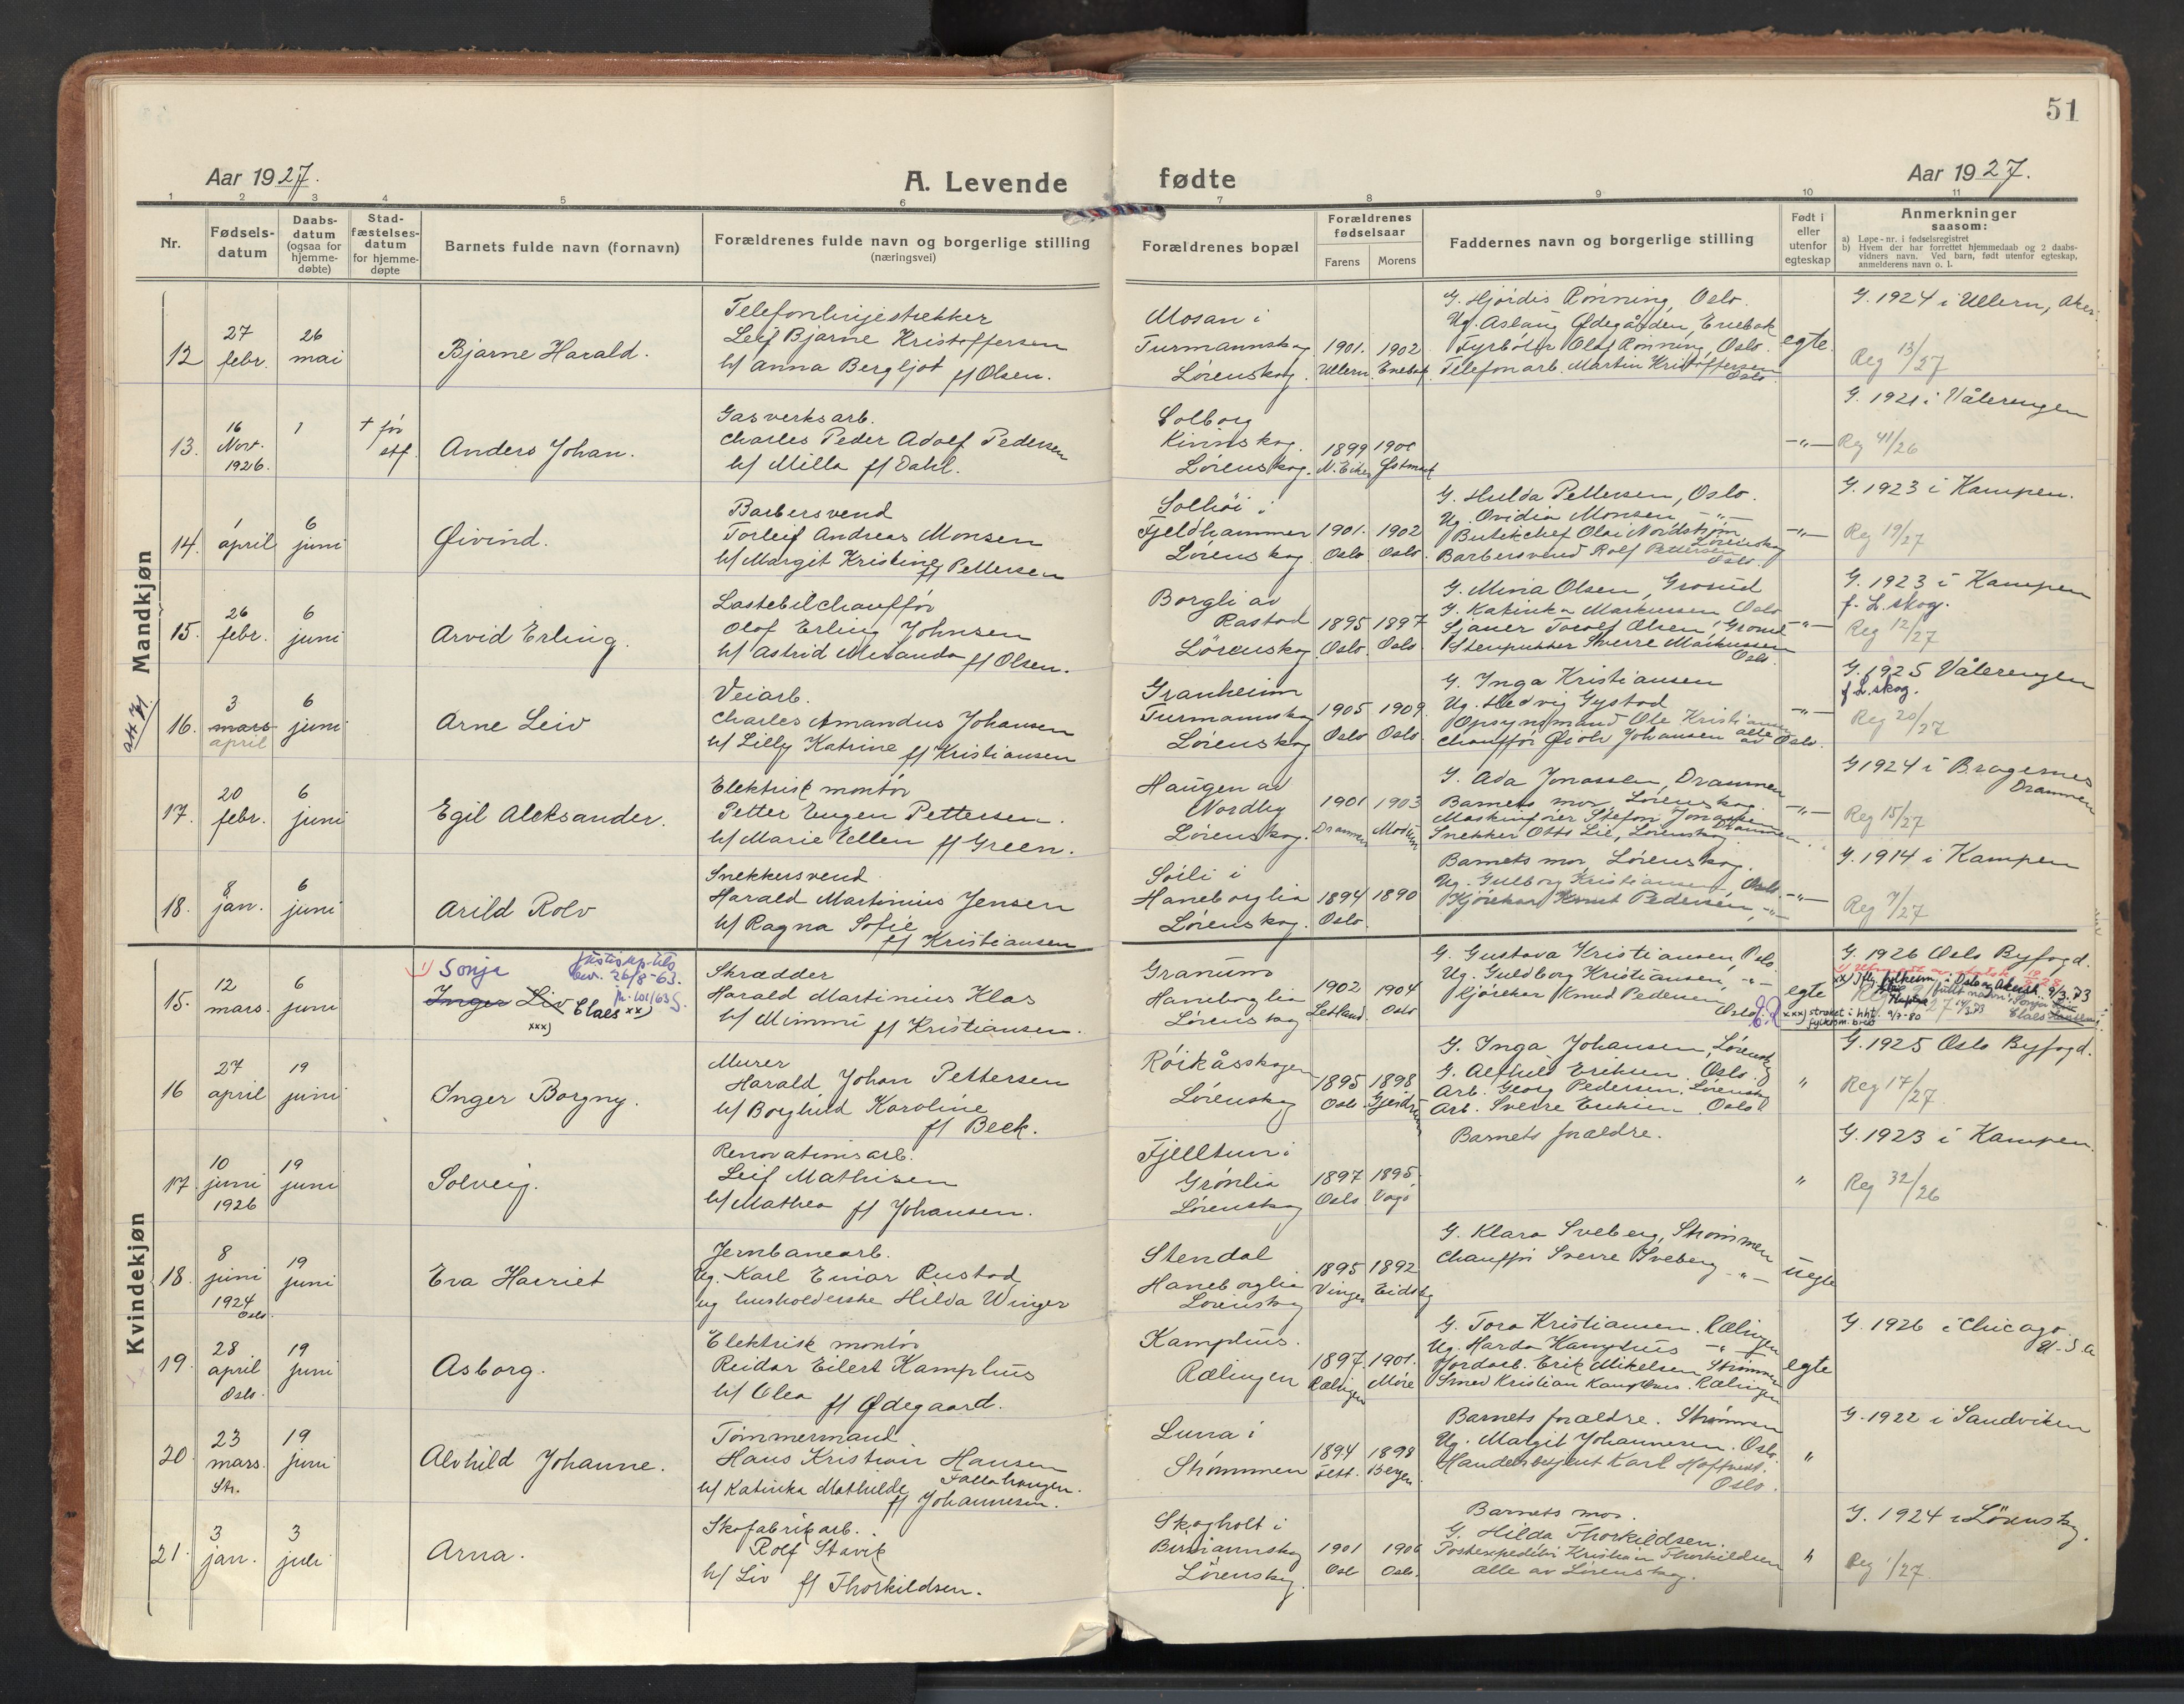 51
Aar 1927.
A. Levende
fødte
Aar 1927.
1 2 3 4 5 6 7 8 9 10 11
Nr.
Fødsels-
datum
Daabs-
datum
(ogsaa for
hjemme-
døbte)
Stad-
fæstelses-
datum
for hjemme-
døpte
Barnets fulde navn (fornavn)
Forældrenes fulde navn og borgerlige stilling
(næringsvei)
Forældrenes bopæl
Forældrenes
fødselsaar
Farens
Morens
Faddernes navn og borgerlige stilling
Født i
eller
utenfor
egteskap
Anmerkninger
saasom:
a) Løpe-nr. i fødselsregistret
b) Hvem der har forrettet hjemmedaab og 2 daabs-
vidners navn. Ved barn, født utenfor egteskap,
anmelderens navn o. l.
Mandkjøn
12
27
febr.
26
mai
Bjarne Harald.
Telefonlinjestrekker
Leif Bjarne Kristoffersen
h/ Anna Bergljot f/ Olsen.
Mosan i
Turmannskog
Lørenskog.
1901. 1902
Ullern. Enebak.
G. Hjørdis Rønning, Oslo.
Ug. Aslaug Ødegården, Enebak
Fyrbøter Olaf Rønning, Oslo.
Telefonarb. Martin Kristoffersen
Oslo.
egte.
G. 1924 i Ullern, Aker.
Reg 13/27
13.
16
Nov.
1926.
1
+ før
stf.
Anders Johan.
Gasverksarb.
Charles Peder Adolf Pedersen
h/ Milla f/ Dahl.
Solborg
Kinnskog.
Lørenskog.
1899 1900
N. Eiker Østmark
-"-
G. 1921 i Vålerengen
Reg 41/26
14.
1
april
6
juni
Øivind.
Barbersvend
Torleif Andreas Monsen
h/ Margit Kristine f/ Pettersen
Solhøi i
Fjeldhammer
Lørenskog
1901. 1902
Oslo. Oslo.
G. Hulda Pettersen, Oslo.
Ug. Ovidia Monsen -"-
Butikchef Olai Nordstrøm,
Lørenskog
Barbersvend Rolf Pettersen
Oslo.
-"-
G. 1923 i Kampen.
Reg 19/27
15.
26
febr.
6
juni
Arvid Erling.
Lastebilchauffør
Olof Erling Johnsen
h/ Astrid Meranda f/ Olsen.
Borgli av
Rastad
Lørenskog
1895 1897
Oslo. Oslo.
G. Mina Olsen, Grorud
G. Katinka Markussen Oslo
Sjauer Toralf Olsen, Grorud
Stenpukker Sverre Markussen
Oslo.
-"-
G. 1923 i Kampen
f. L.skog.
Reg 12/27
att. f/.
16.
3
mars
april
6
juni
Arne Leiv
Veiarb.
Charles Amandus Johansen
h/ Lilly Katrine f/ Kristiansen
Granheim
Turmannskog
Lørenskog
1905 1909.
Oslo Oslo.
G. Inga Kristiansen
Ug. Hedvig Gystad
Opsynsmand Ole Kristiansen
Chauffør Øiolv Johansen alle
av Oslo.
-"-
G. 1925 Vålerengen
f L.skog.
Reg 20/27
17.
20
febr.
6
juni
Egil Aleksander.
Elektrisk montør
Petter Eugen Pettersen.
h/ Marie Ellen f/ Green.
Haugen av
Nordby
Lørenskog.
1901 1903
Drammen Modum
G. Ada Jonassen, Drammen
Barnets mor, Lørenskog.
Maskinfører Stefan Jonassen
Drammen
Snekker Otto Lie, Lørenskog.
-"-
G 1924 i Bragernes
Drammen
Reg 15/27
18.
8
jan.
6
juni
Arild Rolv
Snekkersvend
Harald Martinius Jensen
h/ Ragna Sofie
f/ Kristiansen
Solli i
Haneborglia
Lørenskog.
1894 1890
Oslo.
Barnets mor, Lørenskog.
Ug. Gulborg Kristiansen, Oslo.
Kjørekar Knut Pedersen, -"-
-"-
G. 1914 i Kampen
Reg 7/27
Kvindekjøn
15.
12
mars.
6
juni
1) Sonja
Inger Liv Claes xx)
xxx)
bev. 26/8-63.
Skrædder
Harald Martinius Klas
h/ Mimmi f/ Kristiansen.
Granum
Haneborglia
Lørenskog
1902 1904
Letland. Oslo
G. Gustava Kristiansen, Oslo.
Ug. Guldborg Kristiansen, -"-
Kjørekar Knud Pedersen
Oslo
egte
G. 1926 Oslo Byfogd.
xx) Iflg. fylkesm. i Oslo og Akersh. 9/3.73
xxx) strøket i hht.
fylkesm. brev
16
27
april
19
juni
Inger Borgny.
Murer
Harald Johan Pettersen
h/ Borghild Karoline
f/ Beck.
Røikåsskogen
Lørenskog
1895 1898
Oslo. Gjerdrum
G. Inga Johansen, Lørenskog
G. Alfhild Eriksen. Oslo.
Arb. Georg Pedersen. Lørenskog
Arb. Sverre Eriksen. Oslo.
"
G. 1925 Oslo Byfogd.
Reg 17/27
17.
10
juni
1926
19
juni
Solveig.
Renovationsarb.
Leif Mathisen
h/ Mathea f/ Johansen.
Fjelltun i
Grønlia
Lørenskog
1897 1895.
Oslo. Vågå
Barnets forældre.
"
G. 1923 i Kampen.
Reg 32/26
18.
8
juni
1924
Oslo.
19
juni
Eva Harriet
Jernbanearb.
Ug. Karl Einar Rustad
ug husholderske Hilda Winger
Stendal
Haneborglia
Lørenskog
1895 1892
Vinger Eidsberg
G. Klara Sveberg, Strømmen
Chauffør Sverre Sveberg -"-
uegte
19.
28
april
Oslo.
19
juni
Asborg.
Elektrisk montør
Reidar Eilert Kamphus
h/ Olea f/ Ødegaard.
Kamphus.
Rælingen
1897. 1901.
Rælingen Møre
G. Tora Kristiansen. Rælingen
Ug. Harda Kamphus -"-
Jordarb. Erik Mikelsen Strømmen
Smed Kristian Kamphus. Rælingen
egte
G. 1926 i Chicago
U. S a
20.
23
mars.
Str.
19
juni
Alvhild Johanne.
Tømmermand
Hans Kristian Hansen
Fallahaugen.
h/ Katinka Mathilde
f/ Johannesen.
Lurra i
Strømmen
1894 1898
Fett. Bergen.
Barnets forældre. Strømmen
Ug. Margit Johannesen. Oslo.
Handelsbetjent Karl
Oslo.
"
G. 1922 i Sandviken
21.
3
jan.
3
juli
Arna.
Skofabrikarb.
Rolf Stavik
h/ Liv f/ Thorkildsen.
Skogholt i
Lørenskog.
1901 1906
Oslo Oslo.
Barnets mor.
G. Hilda Thorkildsen.
Postexpeditør Kristian Thorkildsen
alle av Lørenskog.
"
G. 1924 i Lørenskog.
Reg 1/27